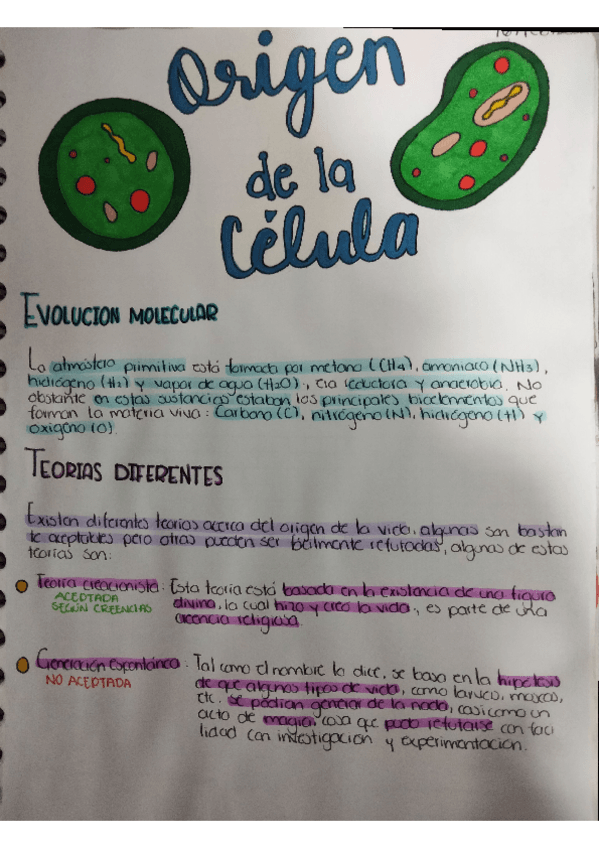 Origen
de la
Célula
EVOLUCION MOLECULAR
La atmósfera primitiva está formada por metano (CH4), amoniaco (NH3),
hidrógeno (H2) y vapor de agua (H2O), era reductora y anaerobia. No
obstante en estas sustancias estaban los principales bioelementos que
forman la materia viva: Carbono (C), nitrógeno (N), hidrógeno (H) y
oxígeno (O).
TEORIAS DIFERENTES
Existen diferentes teorias acerca del origen de la vida, algunas son bastan
te aceptables pero otras pueden ser facilmente refutadas, algunas de estas
teorías son:
Teoría creacionista: Esta teoría está basada en la existencia de una figura
ACEPTADA
SEGÚN CREENCIAS
divina, la cual hizo y creo la vida, es parte de una
creencia religiosa.
Generación espontánea: Tal como el nombre lo dice, se basa en la hipotesis
NO ACEPTADA
de que algunos tipos de vida, como larvas, moscas,
etc. se podian generar de la nada, casi como un
acto de magia, cosa que pudo refutarse con faci
lidad con investigación y experimentación.